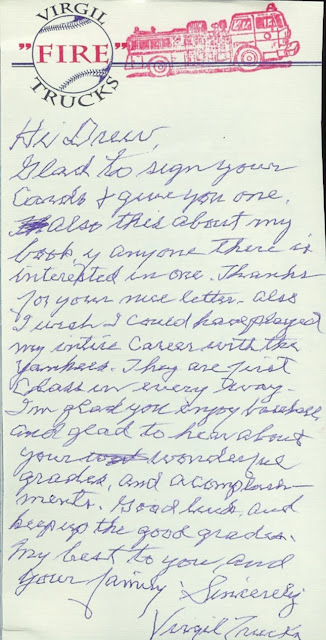 VIRGIL
"FIRE"
TRUCKS
Hi Drew,
Glad to sign your
Cards & give you one.
also this about my
book if anyone there is
interested in one. Thanks
for your nice letter. also
I wish I could have played
my entire Career with the
Yankees. They are first
Class in every way.
I'm glad you enjoy baseball,
and glad to hear about
your wonderful
grades, and accomplish-
ments. Good luck, and
keep up the good grades.
My best to you, and
your family. Sincerely
Virgil Trucks